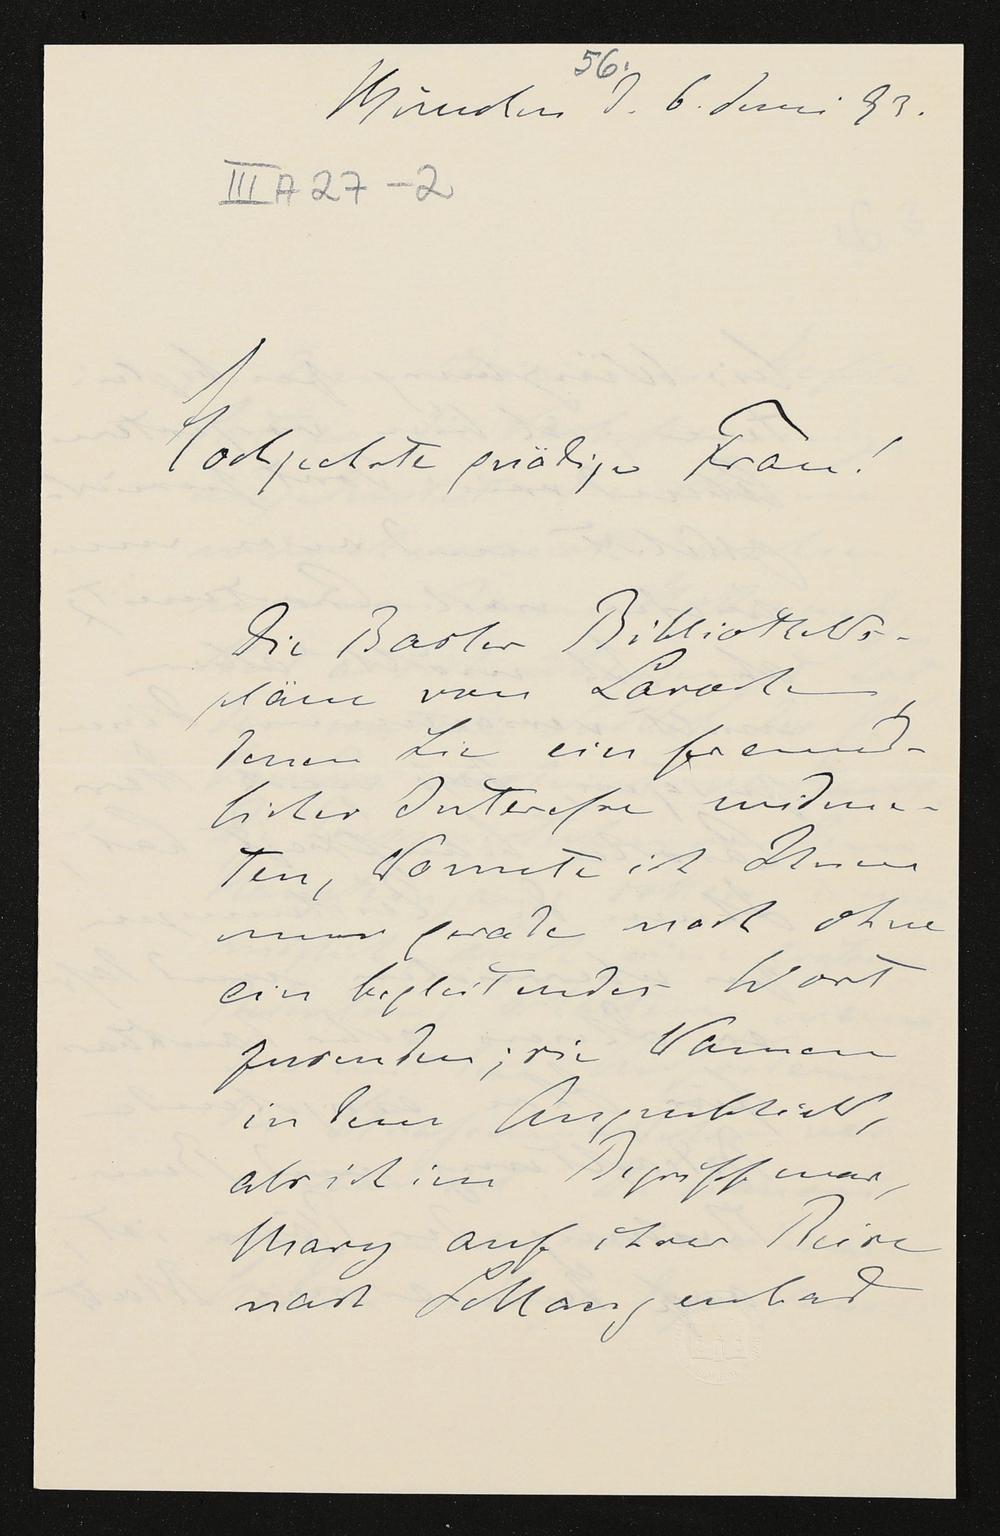 56.
München d. 6. Juni 93.
III A 27 - 2
Hochgeehrte gnädige Frau!
Die Basler Bibliotheks-
pläne von Laroche,
denen Sie ein freund-
liches Interesse widme-
ten, konnte ich Ihnen
nur gerade noch ohne
ein begleitendes Wort
zusenden; sie kamen
in dem Augenblick,
als ich im Begriff war,
Mary auf ihrer Reise
nach Schlangenbad